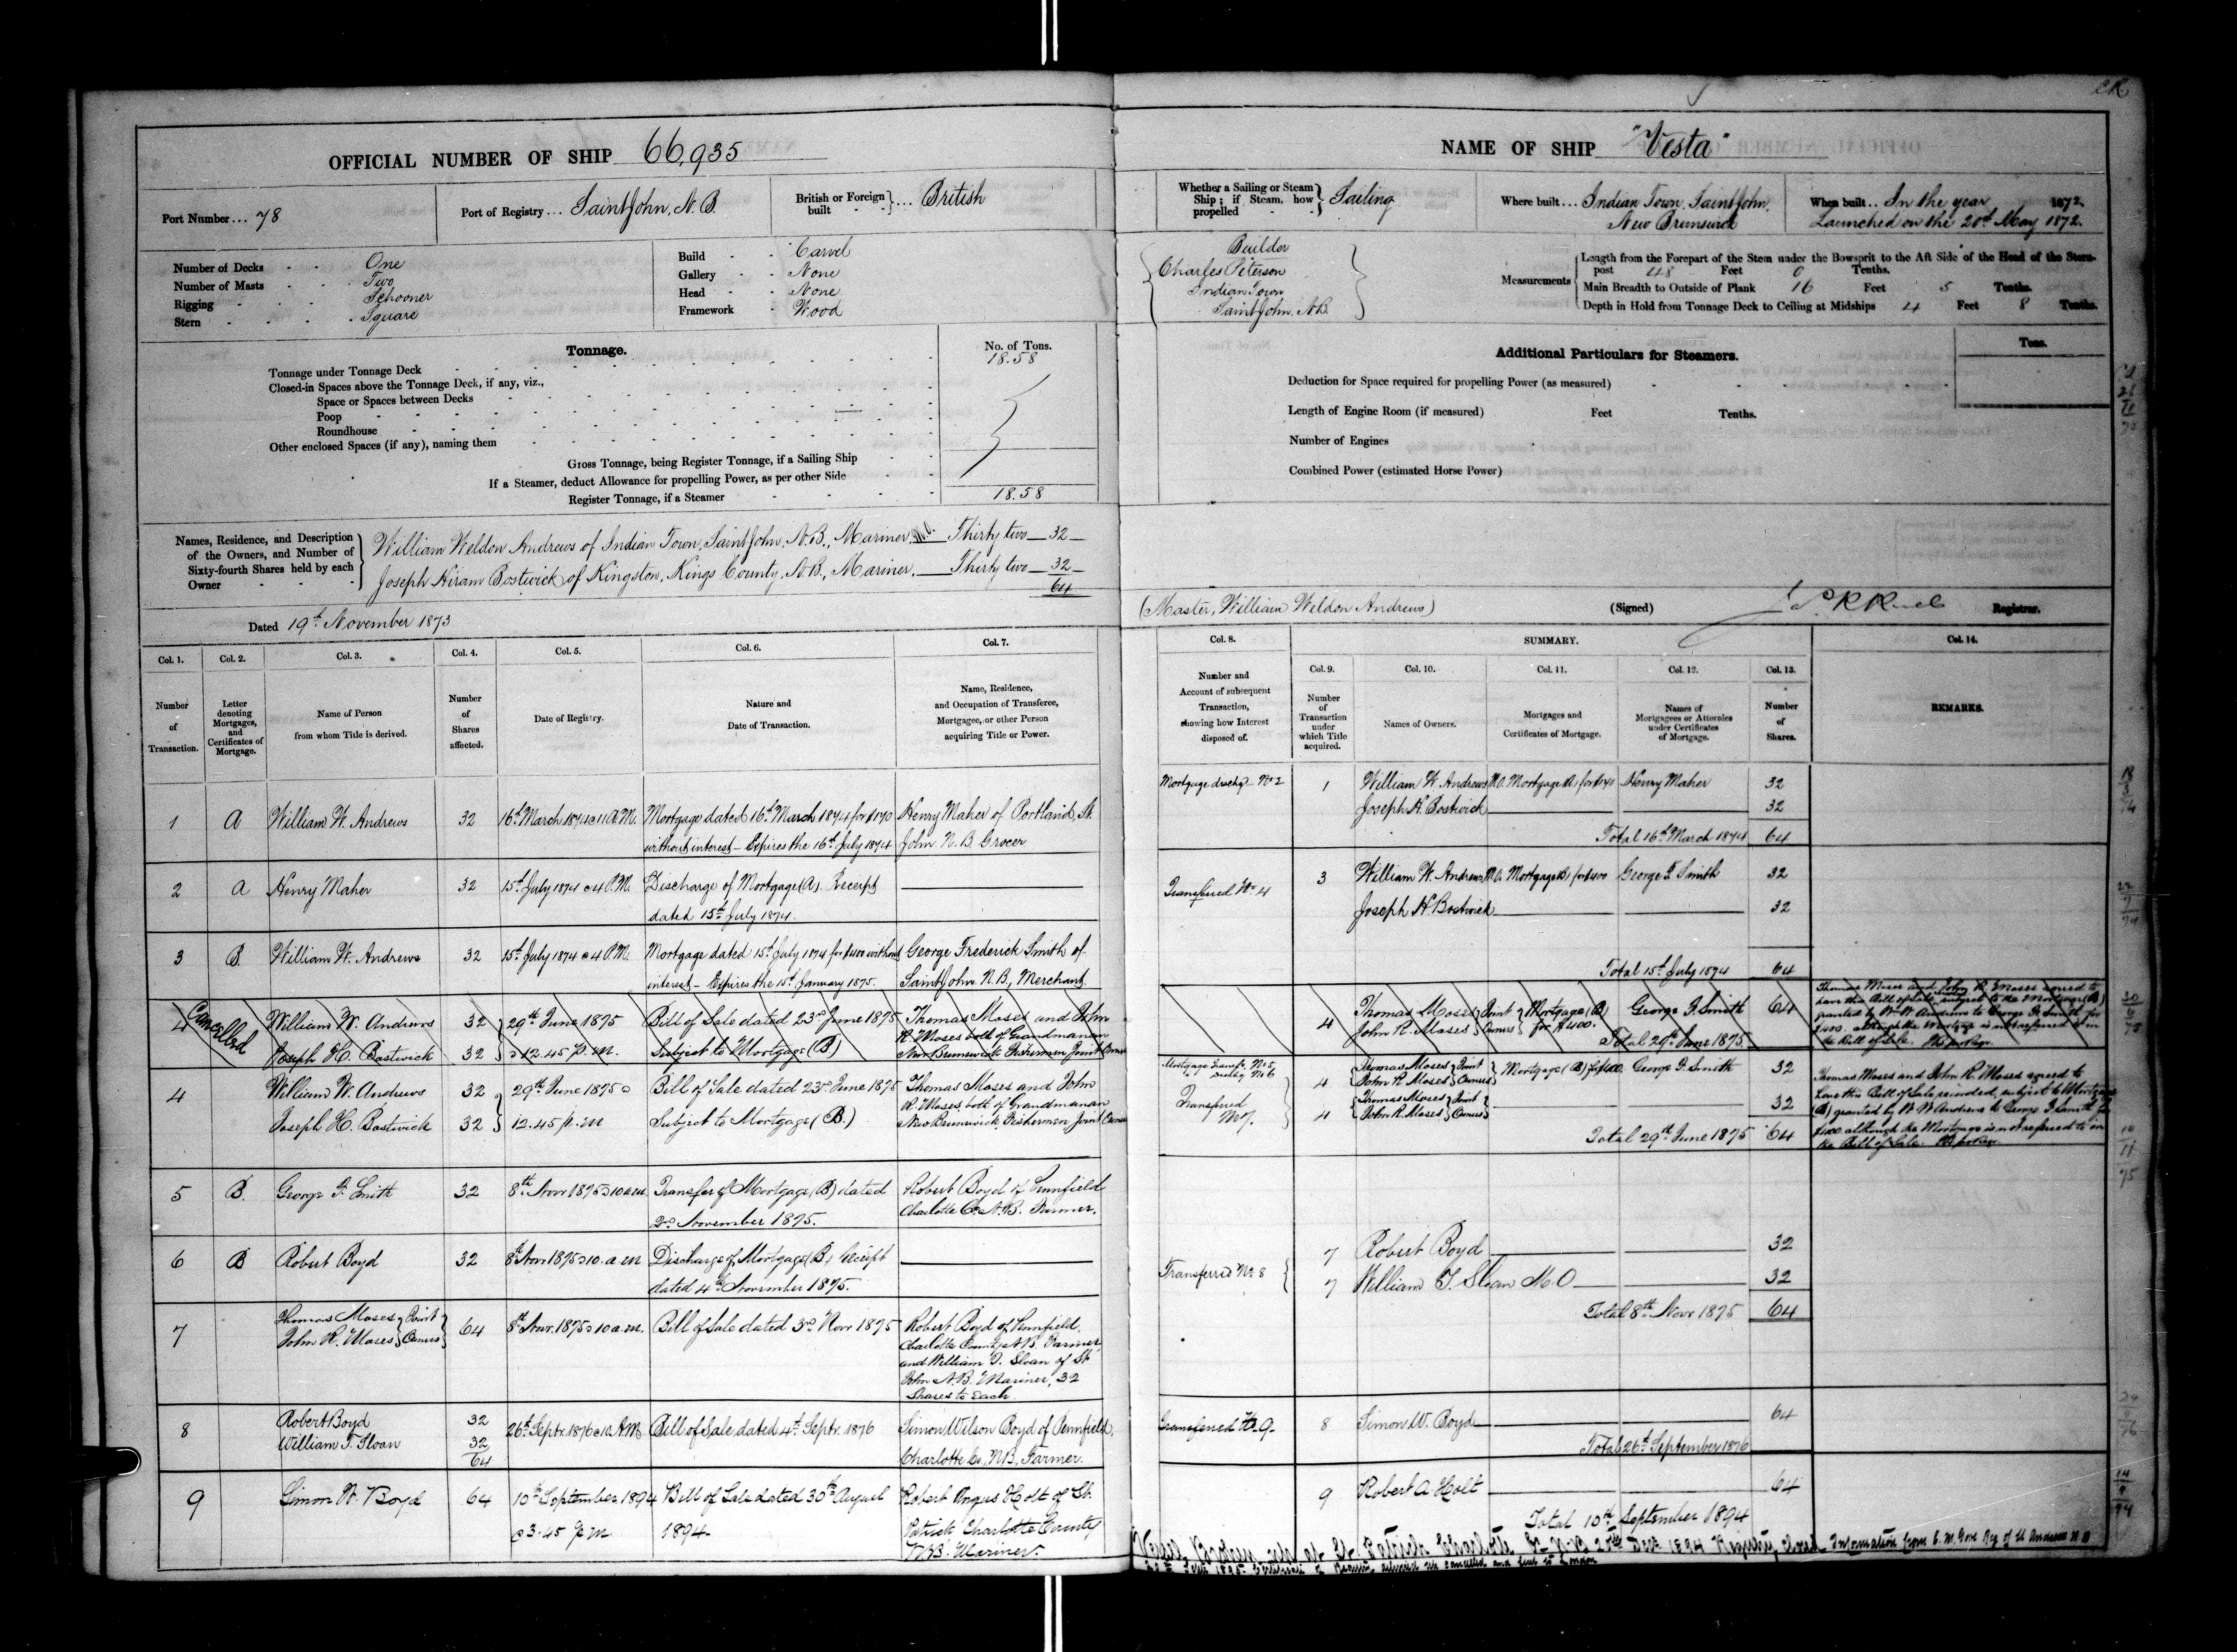 OFFICIAL NUMBER OF SHIP 66,935
Port Number... 78
Port of Registry... Saint John, N.B.
British or Foreign built } ... British
Number of Decks - - One
Number of Masts - - Two
Rigging - - Schooner
Stern - - Square
Build - - Carvel
Gallery - - None
Head - - None
Framework - Wood
Tonnage. No. of Tons.
Tonnage under Tonnage Deck 18.58
Closed-in Spaces above the Tonnage Deck, if any, viz.,
Space or Spaces between Decks
Poop
Roundhouse
Other enclosed Spaces (if any), naming them
Gross Tonnage, being Register Tonnage, if a Sailing Ship
If a Steamer, deduct Allowance for propelling Power, as per other Side
Register Tonnage, if a Steamer 18.58
Names, Residence, and Description of the Owners, and Number of Sixty-fourth Shares held by each Owner
William Weldon Andrews of Indian Town, Saint John, N.B., Mariner, M.O. Thirty two 32
Joseph Hiram Bostwick of Kingston, Kings County, N.B., Mariner. Thirty two 32
64
Dated 19th November 1873
Col. 1. Col. 2. Col. 3. Col. 4. Col. 5. Col. 6. Col. 7.
Number of Transaction.
Letter denoting Mortgages, and Certificates of Mortgage.
Name of Person from whom Title is derived.
Number of Shares affected.
Date of Registry.
Nature and Date of Transaction.
Name, Residence, and Occupation of Transferee, Mortgagee, or other Person acquiring Title or Power.
1 A William W. Andrews 32 16th March 1874 @ 11 A.M. Mortgage dated 16th March 1874 for $170 Henry Maher of Portland, St.
without interest - Expires the 16th July 1874 John. N.B. Grocer
2 A Henry Maher 32 15th July 1874 @ 4 P.M. Discharge of Mortgage (A). Receipt
dated 15th July 1874.
3 B. William W. Andrews 32 15th July 1874 @ 4 P.M. Mortgage dated 15th July 1874 for $400 without George Frederick Smith of
interest - Expires the 15th January 1875. Saint John. N.B., Merchant.
4 Cancelled William W. Andrews 32 29th June 1875 Bill of Sale dated 23rd June 1875 Thomas Moses and John
Joseph H. Bostwick 32 @ 12.45 p.m. Subject to Mortgage (B) R. Moses both of Grandmanan
New Brunswick Fishermen Joint Owners
4 William W. Andrews 32 29th June 1875 @ Bill of Sale dated 23rd June 1875 Thomas Moses and John
Joseph H. Bostwick 32 12.45 p.m Subject to Mortgage (B.) R. Moses both of Grandmanan
New Brunswick, Fishermen Joint Owners
5 B. George F. Smith 32 8th Novr 1875 @ 10 a.m. Transfer of Mortgage (B) dated Robert Boyd of Pennfield
2nd November 1875. Charlotte Co. N.B. Farmer.
6 B Robert Boyd 32 8th Novr 1875 @ 10. a.m Discharge of Mortgage (B) Receipt
dated 4th November 1875.
7 Thomas Moses John R. Moses } Joint Owners 64 8th Novr. 1875 @ 10 a.m. Bill of Sale dated 3rd Novr 1875 Robert Boyd of Pennfield.
Charlotte County N.B. Farmer,
and William T. Sloan of St.
John N.B. Mariner, 32
Shares to Each.
8 Robert Boyd 32 26th Septr. 1876 @ 10 A.M. Bill of Sale dated 4th Septr. 1876 Simon Wilson Boyd of Pennfield,
William T. Sloan 32 Charlotte Co. N.B. Farmer.
64
9 Simon W. Boyd 64 10th September 1894 Bill of Sale dated 30th August Robert Angus Holt of St.
@ 3.45 p.m 1894 Patrick Charlotte County
N.B. Mariner.
NAME OF SHIP "Vesta"
Whether a Sailing or Steam Ship; if Steam, how propelled } Sailing
Where built... Indian Town, Saint John, New Brunswick
When built.. In the year 1872.
Launched on the 20th May 1872.
Builder
Charles Peterson
Indian Town
Saint John, N.B.
Measurements
Length from the Forepart of the Stem under the Bowsprit to the Aft Side of the Head of the Stern-
post 48 Feet 0 Tenths.
Main Breadth to Outside of Plank 16 Feet 5 Tenths.
Depth in Hold from Tonnage Deck to Ceiling at Midships 4 Feet 8 Tenths.
Additional Particulars for Steamers. Tons.
Deduction for Space required for propelling Power (as measured)
Length of Engine Room (if measured) Feet Tenths.
Number of Engines
Combined Power (estimated Horse Power)
(Master, William Weldon Andrews) (Signed) Registrar.
Col. 8. SUMMARY. Col. 14.
Col. 9. Col. 10. Col. 11. Col. 12. Col. 13.
Number and Account of subsequent Transaction, showing how Interest disposed of.
Number of Transaction under which Title acquired.
Names of Owners.
Mortgages and Certificates of Mortgage.
Names of Mortgagees or Attornies under Certificates of Mortgage.
Number of Shares.
REMARKS.
Mortgage dischgd No 2 1 William W. Andrews M.O. Mortgage (A) for $170 Henry Maher 32
Joseph H. Bostwick 32
Total 16th March 1874 64
Transferred No 4 3 William W. Andrews M.O. Mortgage (B) for $400 George F. Smith 32
Joseph H. Bostwick 32
Total 15th July 1874 64
4 Thomas Moses John R. Moses } Joint Owners } Mortgage (B) for $400. George F. Smith 64
Total 29th June 1875.
Thomas Moses and John R. Moses agreed to
have this Bill of Sale subject to the Mortgage (B)
granted by Wm W. Andrews to George F. Smith for
$400 although the Mortgage is not referred to in
the Bill of Sale.
Mortgage Transfd. No. 5, dischg No 6 4 Thomas Moses John R. Moses } Joint Owners } Mortgage (B) $400. George F. Smith 32
Transferred No 7. 4 Thomas Moses John R. Moses } Joint Owners 32
Total 29th June 1875 64
Thomas Moses and John R. Moses agreed to
have this Bill of Sale recorded, subject to Mortgage
(B) granted by W W Andrews to George F. Smith for
$400 although the Mortgage is not referred to in
the Bill of Sale.
7 Robert Boyd 32
Transferred No. 8 7 William T. Sloan M.O 32
Total 8th Novr 1875 64
Transferred No. 9. 8 Simon W. Boyd 64
Total 26th September 1876
9 Robert A. Holt 64
Total 10th September 1894
Vessel Broken up at St. Patrick Charlotte Co. N.B. 20th Dec 1894 Registry closed Information from E. M. Gore Reg of St Andrews N B